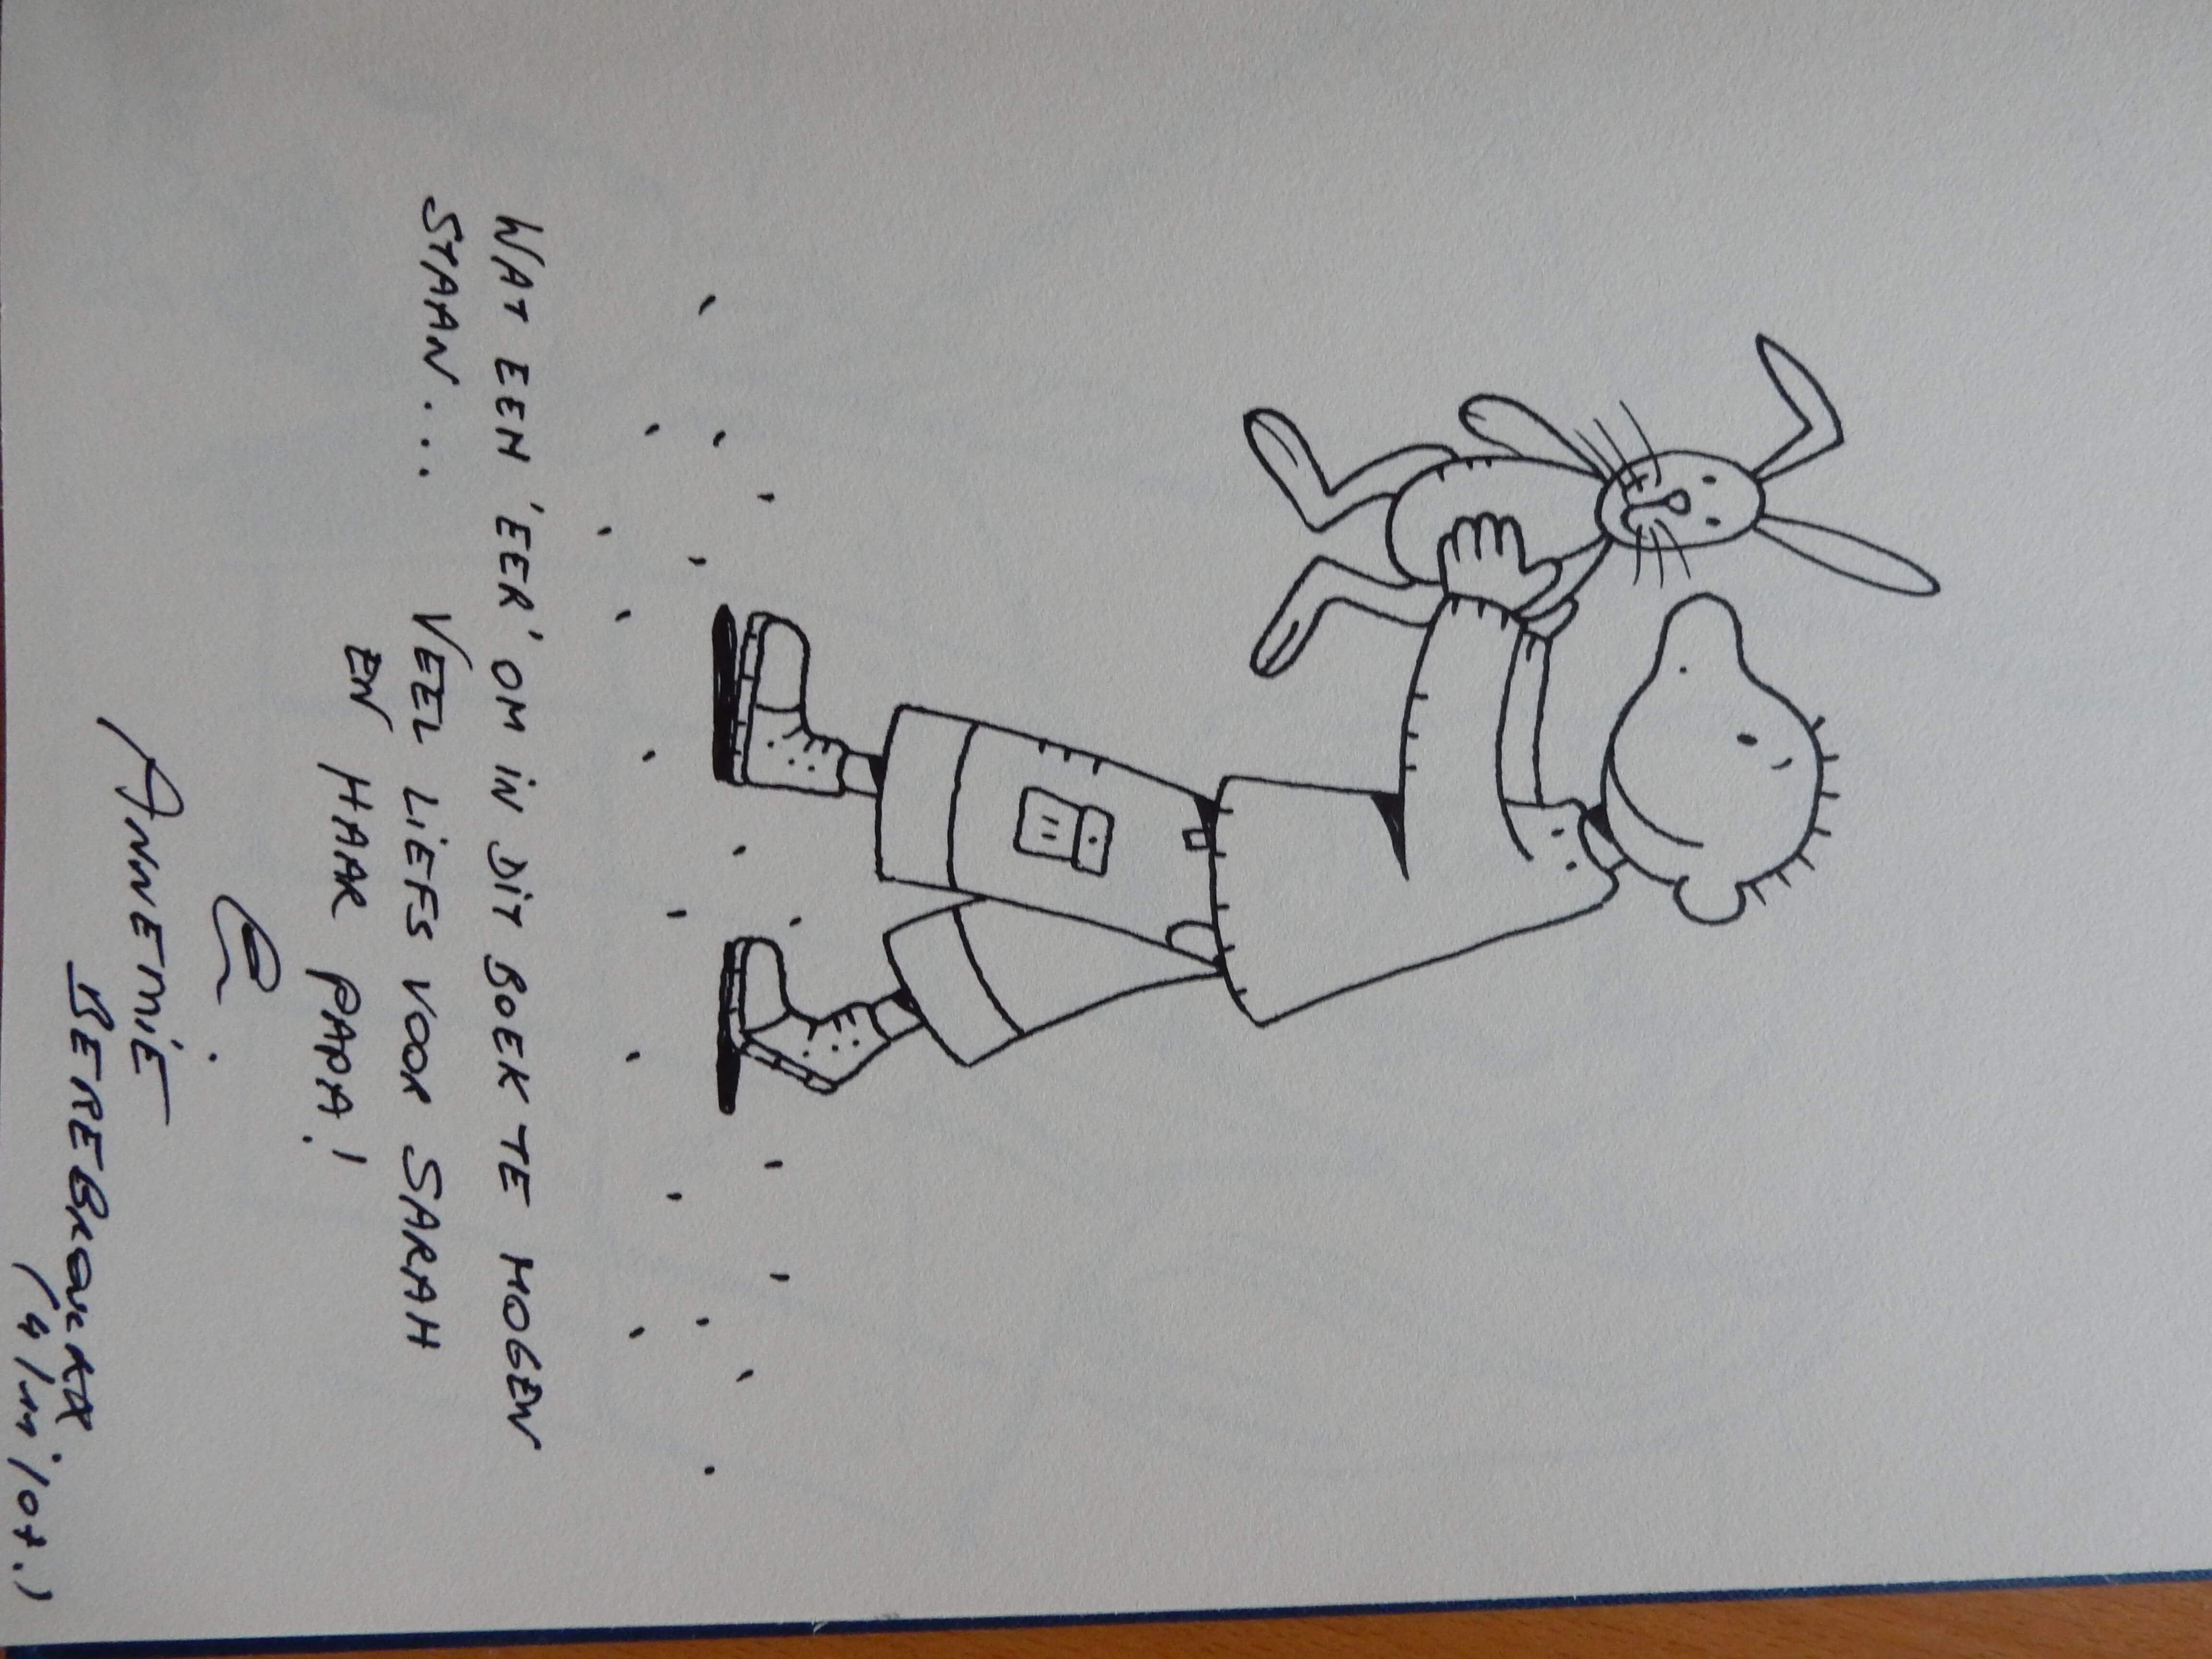 WAT EEN 'EER' OM IN DIT BOEK TE MOGEN
STAAN... VEEL LIEFS VOOR SARAH
EN HAAR PAPA!
ANNEMIE
BEREBROUCKX.
(4/11/07.)